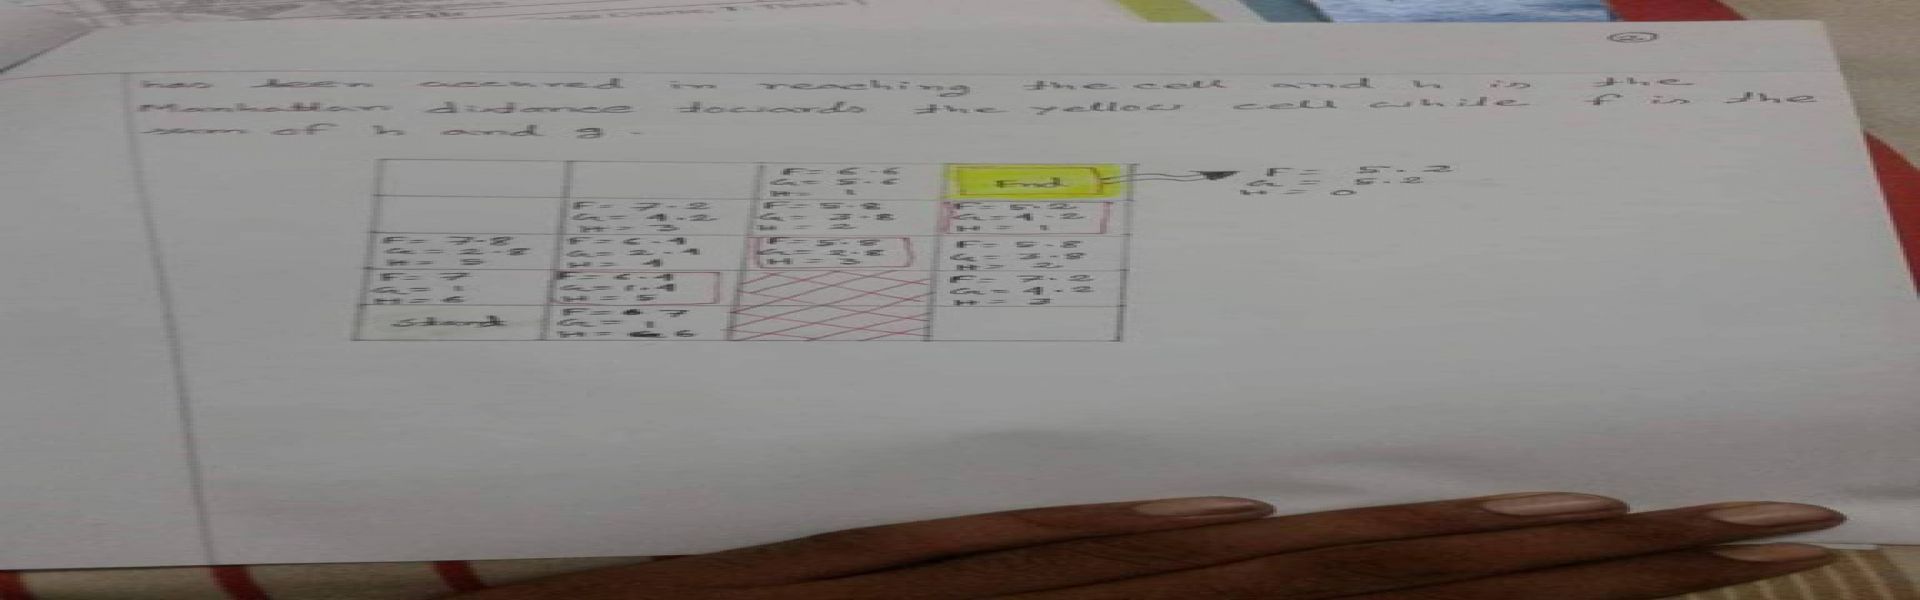 ②
has been accured in reaching the cell and h is the
Manhattan distance towards the yellow cell while f is the
sum of h and g.
F = 6.6
G = 5.6
H = 1
End
F = 5.2
G = 5.2
H = 0
F = 7.2
G = 4.2
H = 3
F = 5.8
G = 3.8
H = 2
F = 5.2
G = 4.2
H = 1
F = 7.8
G = 2.8
H = 5
F = 6.4
G = 2.4
H = 4
F = 5.8
G = 2.8
H = 3
F = 5.8
G = 3.8
H = 2
F = 7
G = 1
H = 6
F = 6.4
G = 1.4
H = 5
F = 7.2
G = 4.2
H = 3
Start
F = 7
G = 1
H = 6